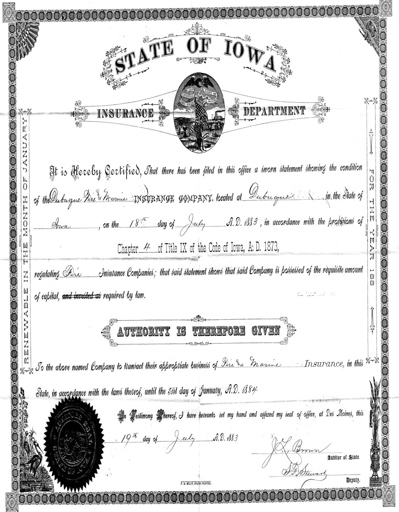 STATE OF IOWA
INSURANCE DEPARTMENT
It is Hereby Certified, That there has been filed in this office a sworn statement showing the condition
of the Dubuque Fire & Marine INSURANCE COMPANY, located at Dubuque, in the State of
Iowa on the 18th day of July A.D. 1883, in accordance with the provisions of
Chapter 4 of Title IX of the Code of Iowa, A. D. 1873,
regulating Fire Insurance Companies; that said statement shows that said Company is possessed of the requisite amount
of capital, and invested as required by law.
AUTHORITY IS THEREFORE GIVEN
To the above named Company to transact their appropriate business of Fire & Marine Insurance, in this
State, in accordance with the laws thereof, until the 31st day of January, A.D. 1884.
In Testimony Whereof, I have hereunto set my hand and affixed my seal of office, at Des Moines, this
19th day of July A.D. 1883
J. L. Brown
Auditor of State.
Deputy.
RENEWABLE IN THE MONTH OF JANUARY
FOR THE YEAR 188